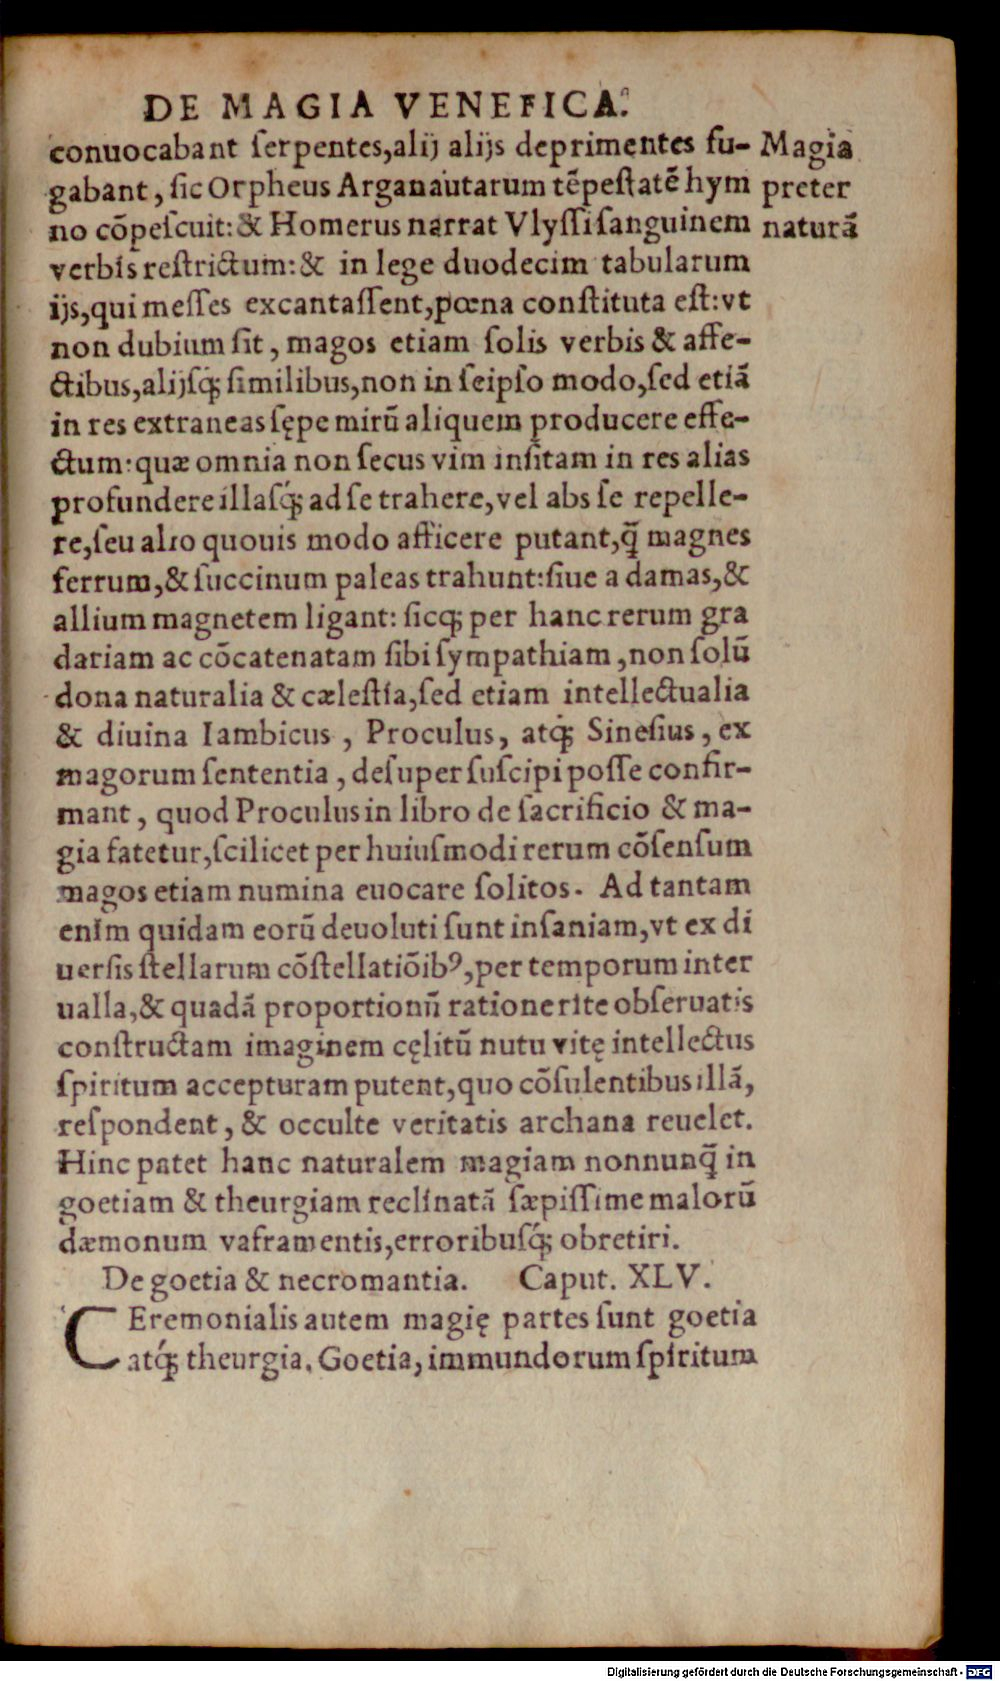 DE MAGIA VENEFICA.
conuocabant ſerpentes, alij alijs deprimentes fu-
gabant, ſic Orpheus Arganautarum tẽpeſtatẽ hym
no cõpeſcuit: & Homerus narrat Vlyſſi ſanguinem
verbis reſtrictum: & in lege duodecim tabularum
ijs, qui meſſes excantaſſent, pœna conſtituta eſt: vt
non dubium ſit, magos etiam ſolis verbis & affe-
ctibus, alijſq́; ſimilibus, non in ſeipſo modo, ſed etiã
in res extraneas ſępe mirũ aliquem producere effe-
ctum: quæ omnia non ſecus vim inſitam in res alias
profundere illaſq́; ad ſe trahere, vel abs ſe repelle-
re, ſeu alio quouis modo afficere putant, q̃ magnes
ferrum, & ſuccinum paleas trahunt: ſiue adamas, &
allium magnetem ligant: ſicq; per hanc rerum gra
dariam ac cõcatenatam ſibi ſympathiam, non ſolũ
dona naturalia & cæleſtia, ſed etiam intellectualia
& diuina Iambicus, Proculus, atq́; Sineſius, ex
magorum ſententia, deſuper ſuſcipi poſſe confir-
mant, quod Proculus in libro de ſacrificio & ma-
gia fatetur, ſcilicet per huiuſmodi rerum cõſenſum
magos etiam numina euocare ſolitos. Ad tantam
enim quidam eorũ deuoluti ſunt inſaniam, vt ex di
uerſis ſtellarum cõſtellatiõibꝰ, per temporum inter
ualla, & quadã proportionũ ratione rite obſeruatis
conſtructam imaginem cęlitũ nutu vitę intellectus
ſpiritum accepturam putent, quo cõſulentibus illã,
reſpondent, & occulte veritatis archana reuelet.
Hinc patet hanc naturalem magiam nonnunq̃ in
goetiam & theurgiam reclinatã ſæpiſſime malorũ
dæmonum vaframentis, erroribuſq́; obretiri.
De goetia & necromantia. Caput. XLV.
CEremonialis autem magię partes ſunt goetia
atq́; theurgia. Goetia, immundorum ſpiritum
Magia
preter
naturã
Digitalisierung gefördert durch die Deutsche Forschungsgemeinschaft - DFG